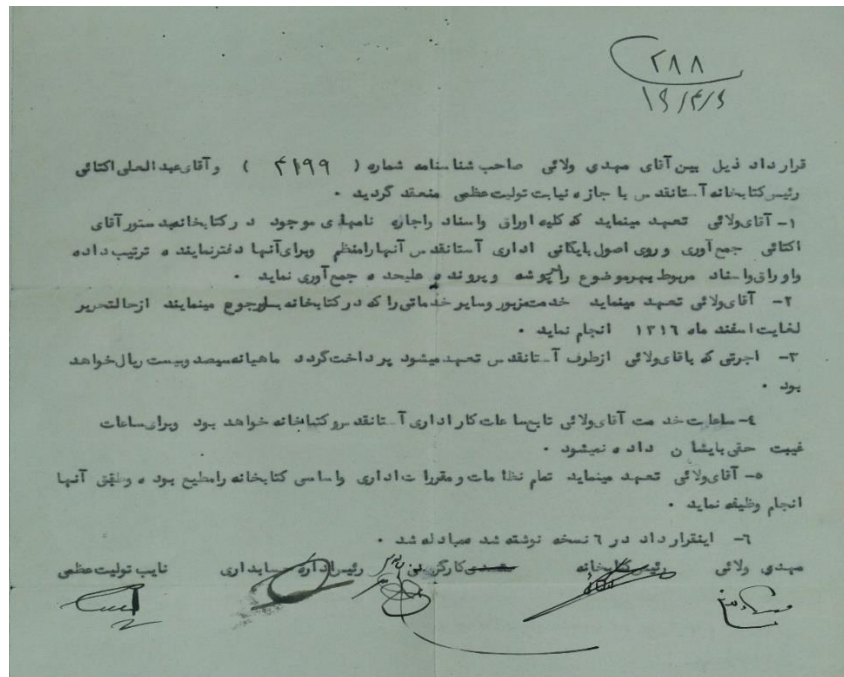 ۲۸۸
۱۶/۴/۶
قرارداد ذیل بین آقای مهدی ولائی صاحب شناسنامه شماره ( ۴۱۹۹ ) و آقای عبدالعلی اکتائی
رئیس کتابخانه آستانقدس با جازه نیابت تولیت عظمی منعقد گردید .
۱- آقای ولائی تعهد مینماید که کلیه اوراق واسناد واجاره نامهای موجود در کتابخانه بدستور آقای
اکتائی جمع آوری و روی اصول بایگانی اداری آستانقدس آنها رامنظم وبرای آنها دفتر نمایند ه ترتیب داده
واوراق واسناد مربوط بهر موضوع را پوشه و پرونده علیحد ه جمع آوری نماید .
۲- آقای ولائی تعهد مینماید خدمت مزبور وسایر خدماتی را که در کتابخانه باو رجوع مینمایند از حال تحریر
لغایت اسفند ماه ۱۳۱۶ انجام نماید .
۳- اجرتی که باقای ولائی از طرف آستانقدس تعهد میشود پرداخت گردد ماهیانه سیصد وبیست ریال خواهد
بود .
٤- ساعات خدمت آقای ولائی تابع ساعات کار اداری آستانقدس و کتابخانه خواهد بود وبرای ساعات
غیبت حقی بایشان داده نمیشود .
۵- آقای ولائی تعهد مینماید تمام نظامات و مقررات اداری واساسی کتابخانه رامطیع بوده وطبق آنها
انجام وظیفه نماید .
٦- اینقرار داد در ٦ نسخه نوشته شد مبادله شد .
مهدی ولائی رئیس کتابخانه کارگزینی رئیس اداره حسابداری نایب تولیت عظمی